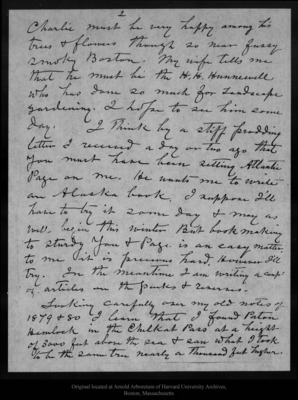 2
Charlie must be very happy among his
trees & flowers though so near fussy
smoky Boston. My wife tells me
that he must be the H.H. Hunnewell
who has done so much for landscape
gardening. I hope to see him some
day. I think by a stiff prodding
letter I received a day or two ago that
you must have been setting Atlantic
Page on me. He wants me to write
an Alaska book. I suppose I'll
have to try it some day & may as
well begin this winter. But book making
to sturdy You & Page is an easy matter,
to me life is precious hard. However I'll
try. In the meantime I am writing a
articles on the parks & reserves.
Looking carefully over my old notes of
1879 & 80 I learn that I found Paton
Hemlock in the Chilkat Pass at a height
of 3000 feet above the sea & saw what I took
to be the same tree nearly a thousand feet higher.
Original located at Arnold Arboretum of Harvard University Archives,
Boston, Massachusetts